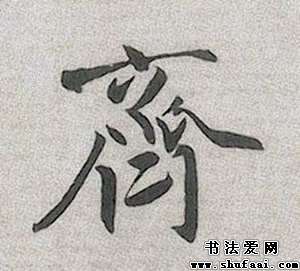 齊
书法爱网
www.shufaai.com